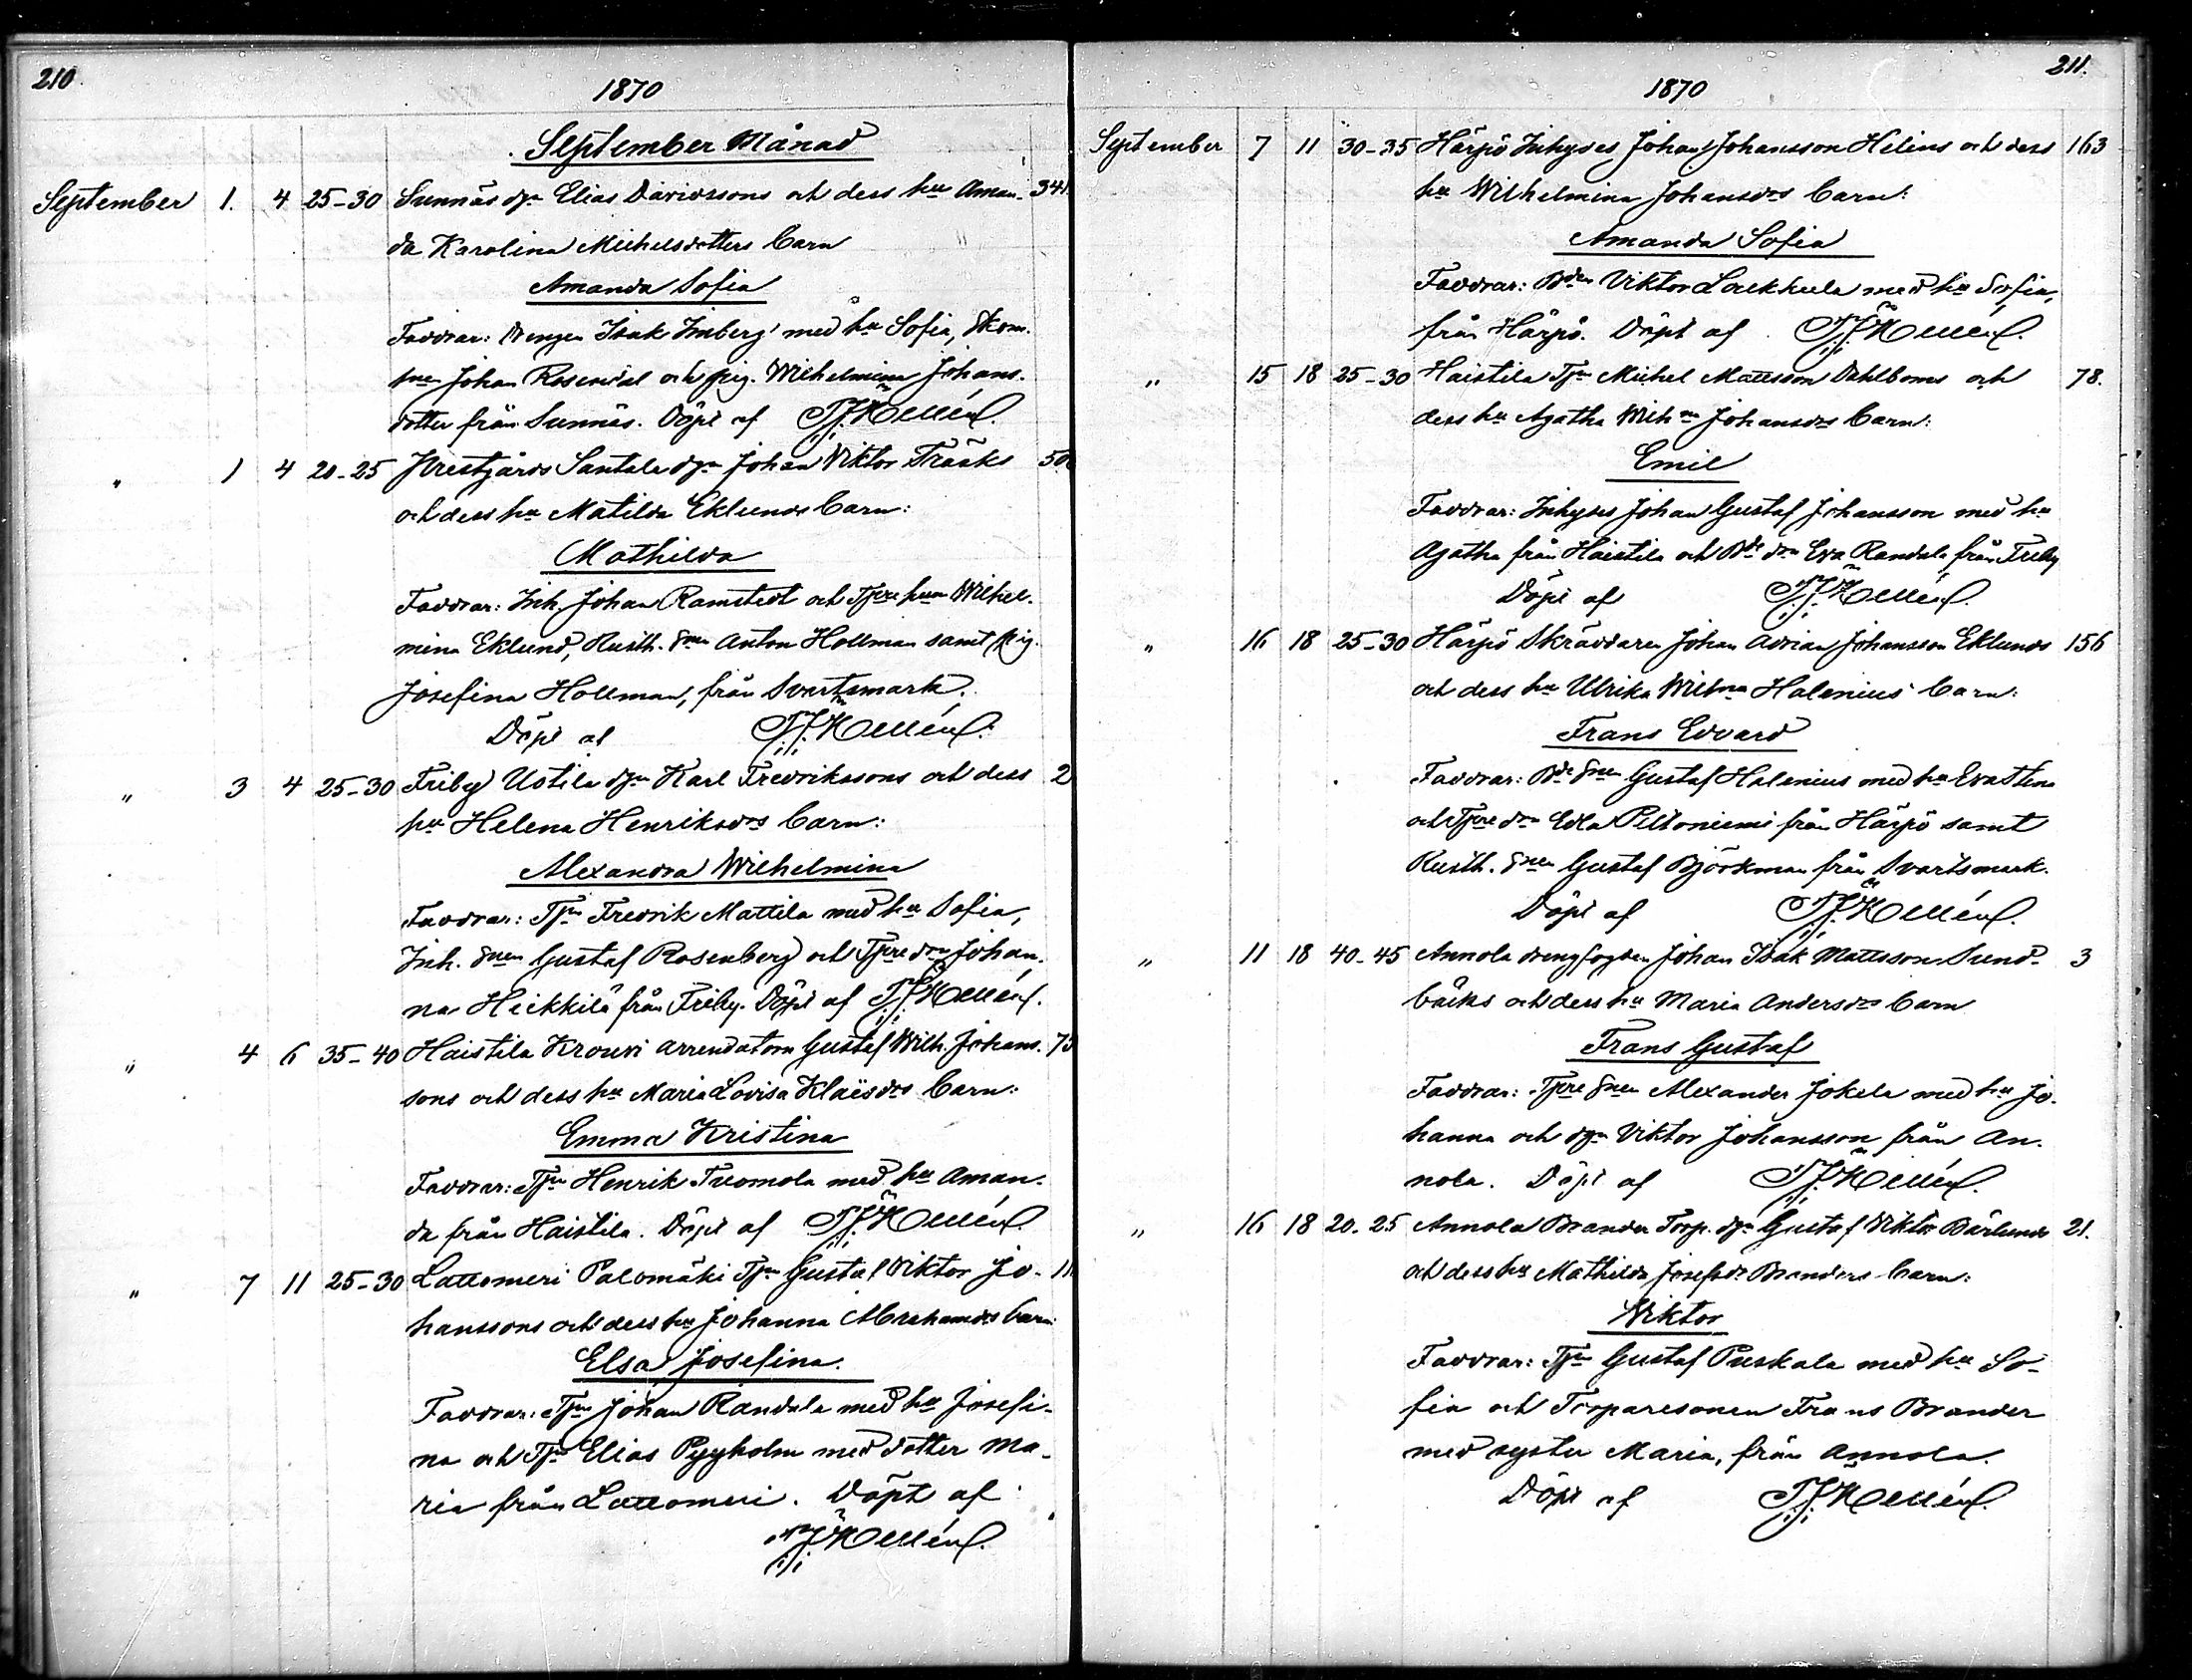 210.
1870
September Månad
September 1. 4 25-30 Sunnäs dgn Elias Davidssons och dess hu Aman- 341.
da Karolina Michelsdotters barn
Amanda Sofia
Faddrar: Drengen Isak Imberg med hu Sofia, Skom.
Johan Rosendal och pig. Wilhelmina Johans-
dotter från Sunnäs. Döpt af
" 1 4 20-25 Prestgårds Santala dgn Johan Viktor Träsks 50
och dess hu Matilda Eklunds barn:
Mathilda
Faddrar: Inh. Johan Ramstedt och Wilhel-
mina Eklund, Rusth. snen Anton Hollman samt pig.
Josefina Hollman, från Svartsmark.
Döpt af
" 3 4 25-30 Friby Uotila dgn Karl Fredrikssons och dess 2
hu Helena Henriksdrs barn:
Alexandra Wilhelmina
Faddrar: Tjn Fredrik Mattila med hu Sofia,
Inh. snen Gustaf Rosenberg och Tjre drn Johan-
na Heikkilä från Friby. Döpt af
" 4 6 35-40 Haistila Krouvi arrendatorn Gustaf Wilh. Johans- 75
sons och dess hu Maria Lovisa Klaësdrs barn:
Emma Kristina
Faddrar: Tjn Henrik Tuomola med hu Aman-
da från Haistila. Döpt af
" 7 11 25-30 Lattomeri Palomäki Tjn Gustaf Viktor Jo- 11
hanssons och dess hu Johanna Abrahamsdrs barn:
Elsa Josefina.
Faddrar: Tjn Johan Randala med hu Josefi-
na och Tjn Elias Pyyholm med dotter Ma-
ria från Lattomeri. Döpt af
211.
1870
September 7 11 30-35 Härpö Inhyses Johan Johansson Helins och dess 163
hu Wilhelmina Johansdrs barn:
Amanda Sofia
Faddrar: Bden Viktor Laukkula med hu Sofia,
från Härpö. Döpt af
" 15 18 25-30 Haistila Tjn Michel Mattsson Dahlboms och 78.
dess hu Agatha Wilhna Johansdrs barn:
Emil
Faddrar: Inhyses Johan Gustaf Johansson med hu
Agatha från Haistila och Bde drn Eva Randala från Friby
Döpt af
" 16 18 25-30 Härpö Skräddaren Johan Adrian Johansson Eklunds 156
och dess hu Ulrika Wilhna Halenius barn:
Frans Edvard
Faddrar: Bde snen Gustaf Halenius med hu Eva Stina
och Tjre drn Edla Peltoniemi från Härpö samt
Rusth. snen Gustaf Björkman från Svartsmark.
Döpt af
" 11 18 40-45 Annola drengfogden Johan Isak Mattsson Sund- 3
bäcks och dess hu Maria Andersdrs barn
Frans Gustaf
Faddrar: Tjre snen Alexander Jokela med hu Jo-
hanna och dgn Viktor Johansson från An-
nola. Döpt af
" 16 18 20-25 Annola Brander Torp. dgn Gustaf Viktor Bärlunds 21.
och dess hu Mathilda Josefsdr Branders barn:
Viktor
Faddrar: Tjn Gustaf Puskala med hu So-
fia och Torparesonen Frans Brander
med syster Maria, från Annola.
Döpt af